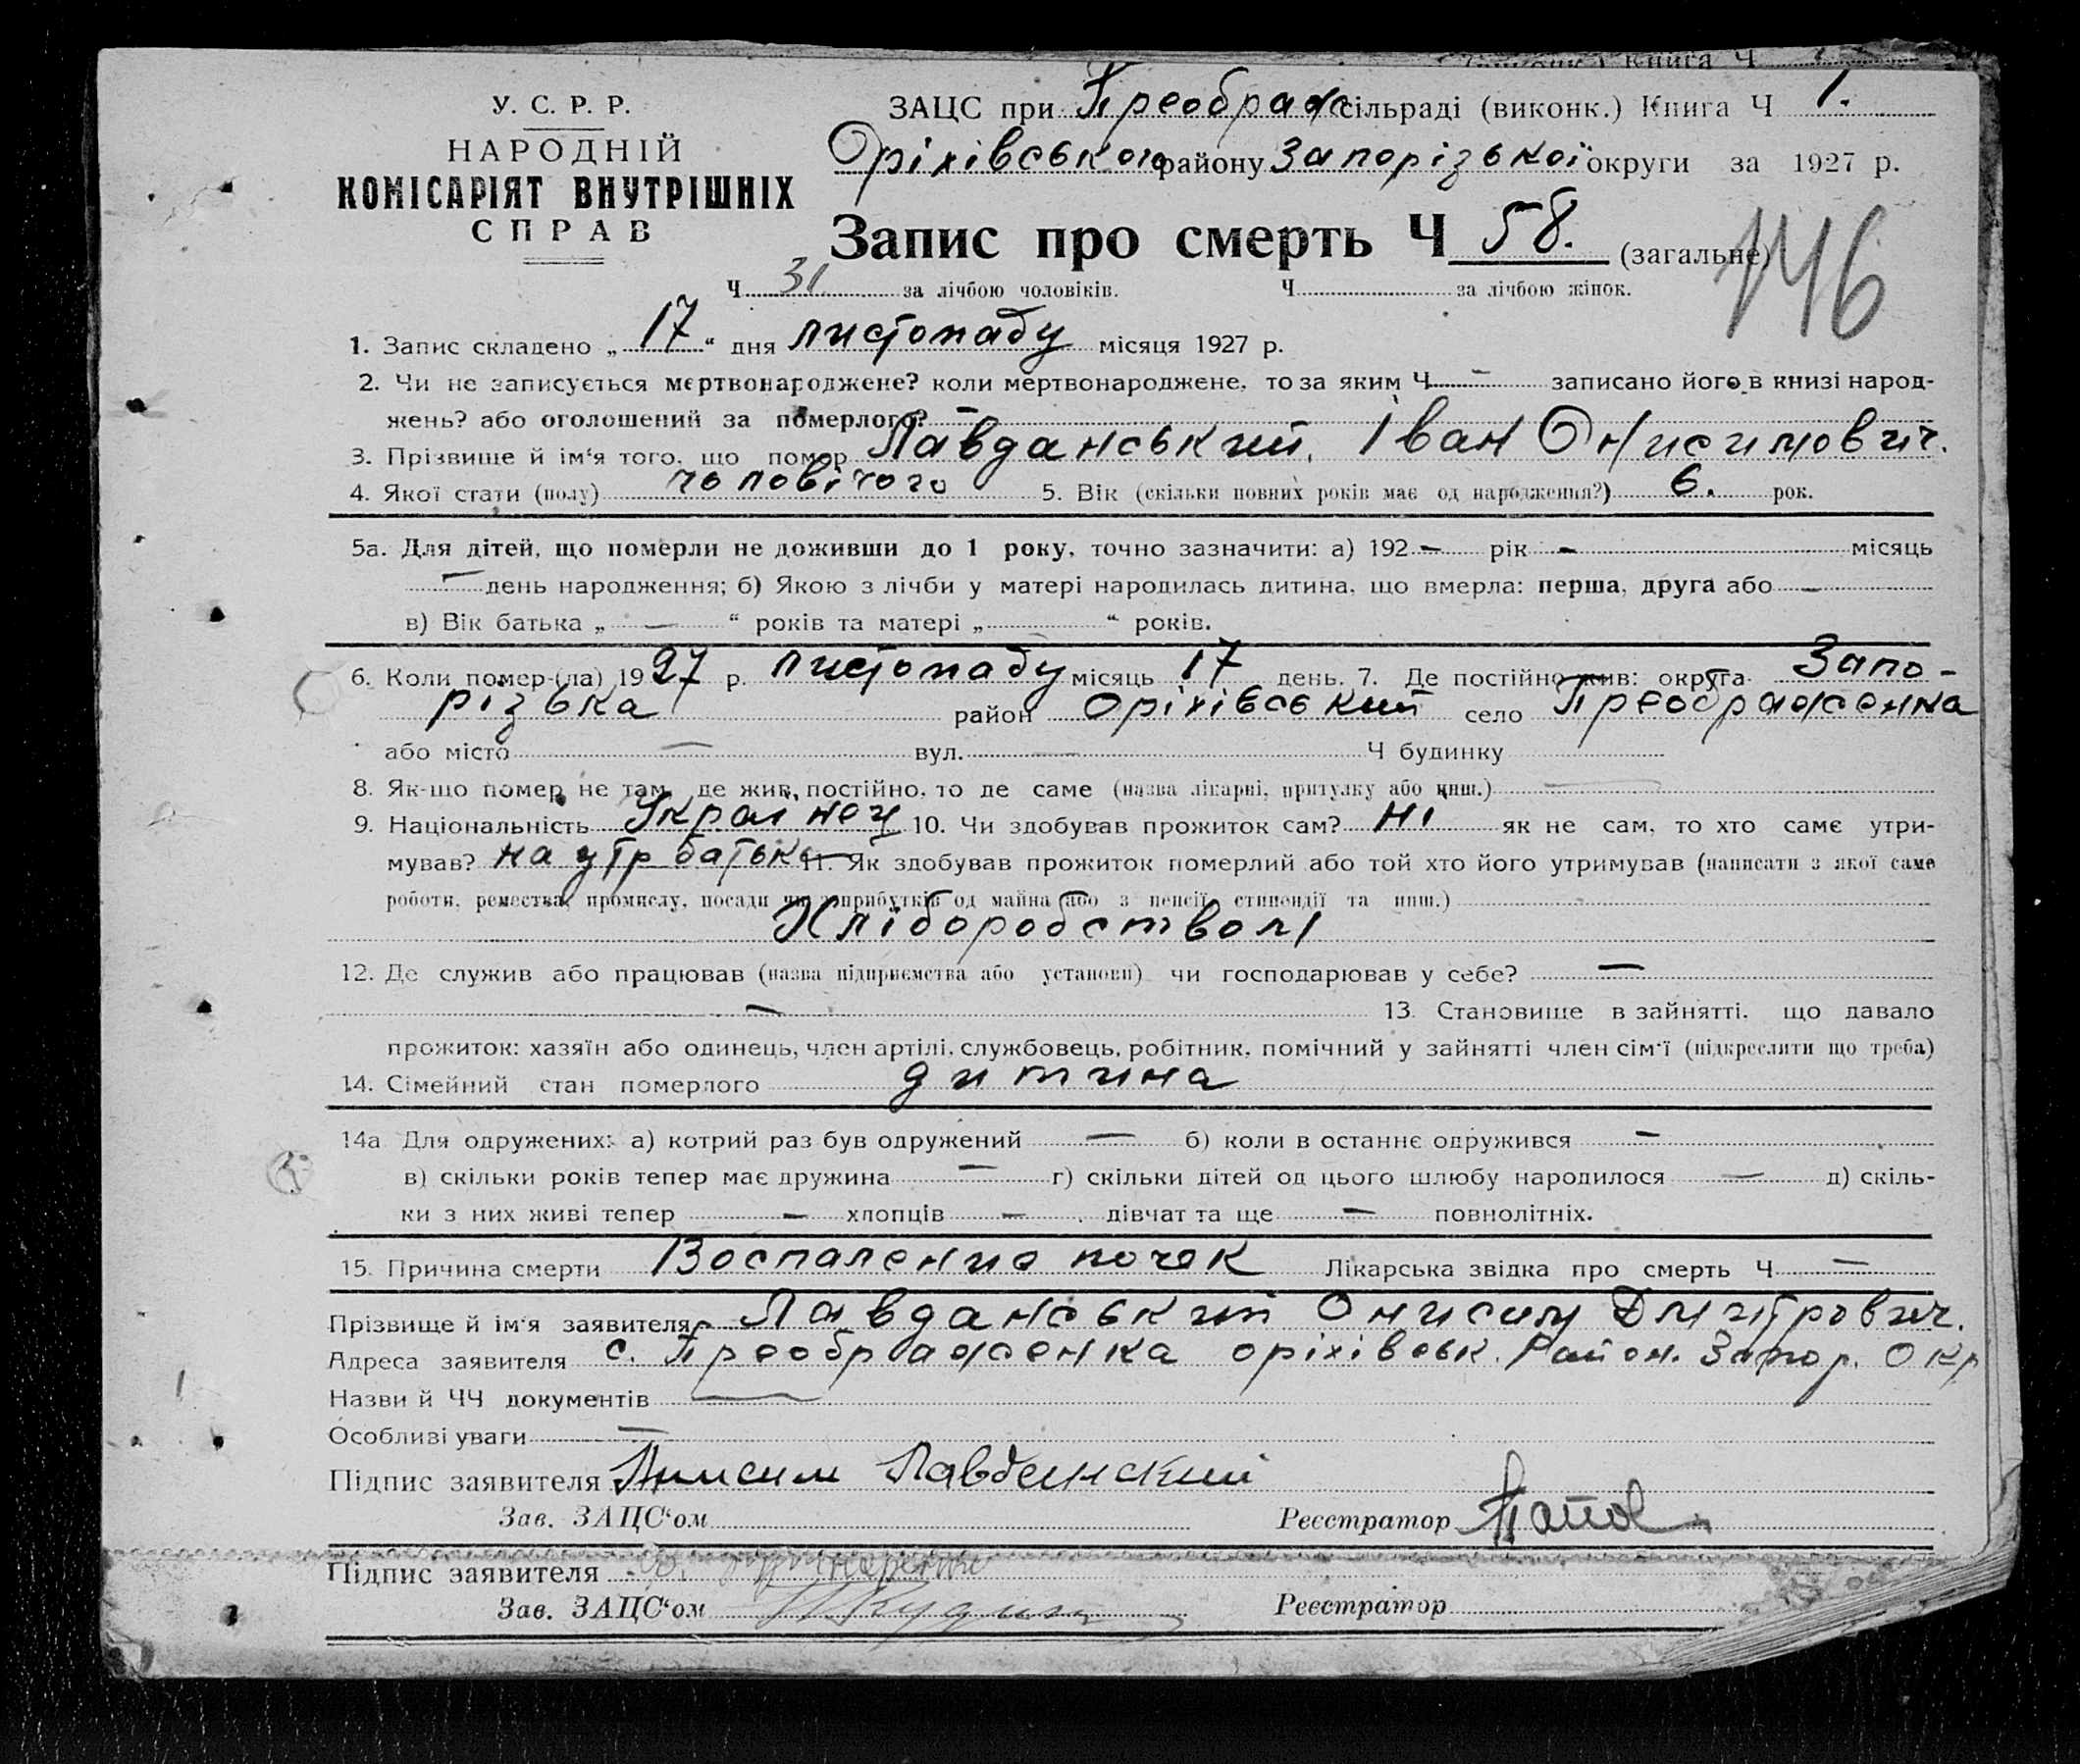 книга Ч
У. С. Р. Р.
НАРОДНІЙ
КОМІСАРІЯТ ВНУТРІШНІХ
СПРАВ
ЗАЦС при Преображ сільраді (виконк.) Книга Ч 1.
Оріхівського району Запорізької округи за 1927 р.
Запис про смерть Ч 58. (загальне)
146
Ч 31 за лічбою чоловіків. Ч за лічбою жінок.
1. Запис складено „ 17 “ дня листопаду місяця 1927 р.
2. Чи не записується мертвонароджене? коли мертвонароджене, то за яким Ч — записано його в книзі народ-
жень? або оголошений за померлого? —
3. Прізвище й ім‘я того, що помер Лавданський, Іван Онисимович.
4. Якої стати (полу) чоловічого 5. Вік (скільки повних років має од народження?) 6. рок.
5а. Для дітей, що померли не доживши до 1 року, точно зазначити: а) 192 — рік — місяць
— день народження; б) Якою з лічби у матері народилась дитина, що вмерла: перша, друга або —
в) Вік батька „ — “ років та матері „ “ років.
6. Коли помер-(ла) 1927 р. листопаду місяць 17 день. 7. Де постійно жив: округа Запо-
різька район Оріхівський село Преображенка
або місто — вул. — Ч будинку
8. Як-що помер не там, де жив, постійно, то де саме (назва лікарні, притулку або инш.) —
9. Національність Українец 10. Чи здобував прожиток сам? ні як не сам, то хто саме утри-
мував? на утр батька 11. Як здобував прожиток померлий або той хто його утримував (написати з якої саме
роботи, ремества, промислу, посади чи з прибутків од майна або з пенсії, стипендії та инш.)
Хліборобством
12. Де служив або працював (назва підприємства або установи) чи господарював у себе? —
— 13. Становище в зайнятті, що давало
прожиток: хазяїн або одинець, член артілі, службовець, робітник, помічний у зайнятті член сім‘ї (підкреслити що треба)
14. Сімейний стан померлого дитина
14а Для одружених: а) котрий раз був одружений — б) коли в останнє одружився —
в) скільки років тепер має дружина — г) скільки дітей од цього шлюбу народилося — д) скіль-
ки з них живі тепер — хлопців — дівчат та ще — повнолітніх.
15. Причина смерти Воспаление почек Лікарська звідка про смерть Ч —
Прізвище й ім‘я заявителя Лавданський Онисим Дмитрович.
Адреса заявителя с. Преображенка оріхівськ. Район. Запор. Окр
Назви й ЧЧ документів —
Особливі уваги —
Підпис заявителя Анисим Лавданский
Зав. ЗАЦС‘ом Реєстратор
Підпис заявителя
Зав. ЗАЦС‘ом Реєстратор